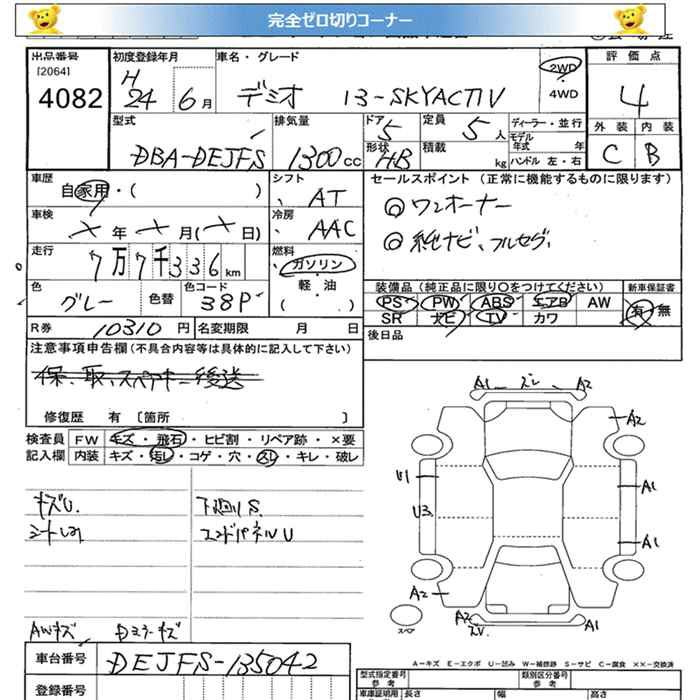 完全ゼロ切りコーナー
出品番号
[2064]
4082
初度登録年月
H
24 6月
車名・グレード
デミオ 13-SKYACTIV
2WD
・
4WD
評価点
4
外装 内装
C B
型式
DBA-DEJFS
排気量
1300cc
ドア
5
形状
HB
定員
5人
積載
kg
ディーラー・並行
モデル
年式 年
ハンドル 左・右
車歴
自家用・( )
車検
年 月( 日)
走行
7万7千336km
色
グレー
色替
色コード
38P
R券 10310円
名変期限 月 日
シフト
AT
冷房
AAC
燃料
ガソリン
・
軽・油
( )
セールスポイント (正常に機能するものに限ります)
◎ワンオーナー
◎純ナビ、フルセグ
装備品(純正品に限り○をつけてください)
PS PW ABS エアB AW
SR ナビ TV カワ
新車保証書
有・無
後日品
注意事項申告欄(不具合内容等は具体的に記入して下さい)
保、取、スペアキー後送
修復歴 有 〔箇所 〕
検査員
記入欄
FW キズ・飛石・ヒビ割・リペア跡・×要
内装 キズ・汚レ・コゲ・穴・スレ・キレ・破レ
キズU.
シートしみ
下廻りS.
エンドパネルU
AWキズ Dミラーキズ
A1 ズレ A2
A2
U1
U3
A1
A1
A2
A2
A1
スペア
車台番号 DEJFS-135042
登録番号
A−キズ E−エクボ U−凹み W−補修跡 S−サビ C−腐食 ××−交換済
型式指定番号
参考
類別区分番号
参考
車庫証明用
長さ 幅 高さ